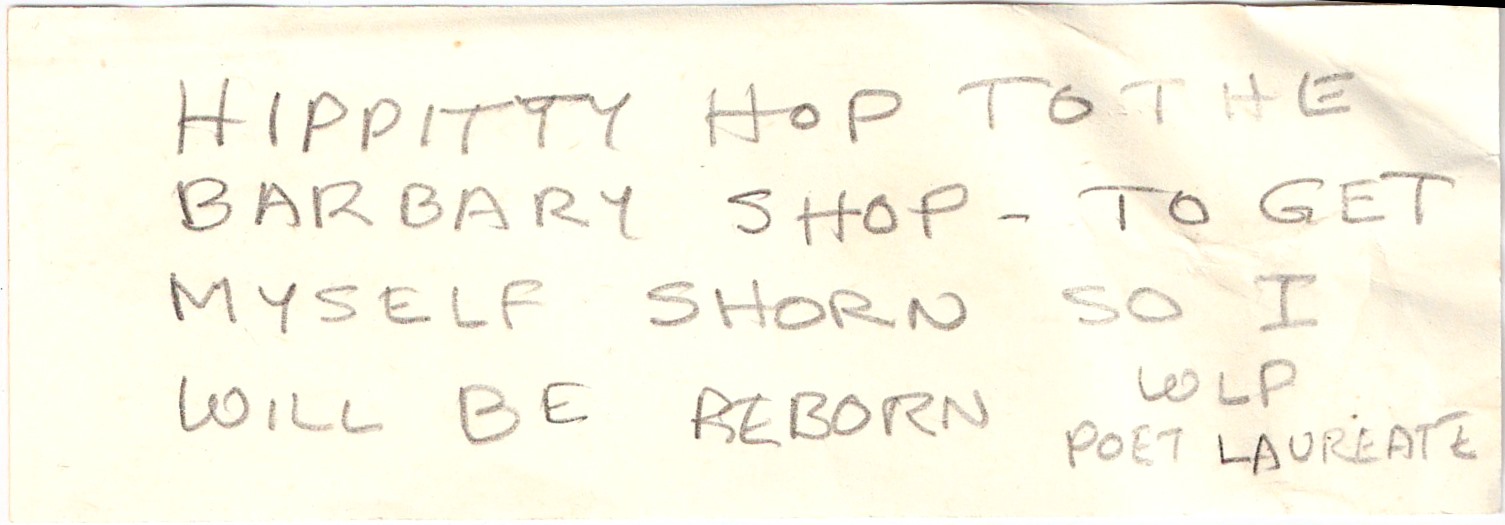 HIPPITTY HOP TO THE
BARBARY SHOP - TO GET
MYSELF SHORN SO I
WILL BE REBORN
WLP
POET LAUREATE